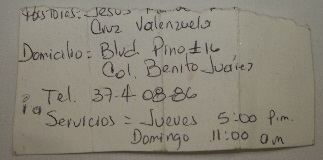 Pastores: Jesus
Cruz Valenzuela
Domicilio: Blvd. Pino #16
Col. Benito Juárez
Tel. 37-4 08-86
Servicios = Jueves 5:00 P.m.
Domingo 11:00 am